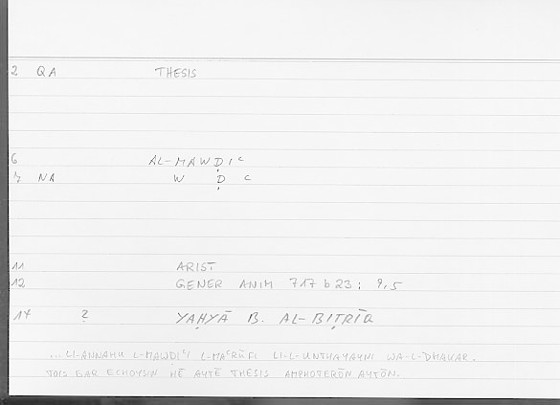 2 QA THESIS
6 AL-MAWḌIᶜ
7 NA W Ḍ ᶜ
11 ARIST
12 GENER ANIM 717 b 23; 9,5
17 ? YAḤYĀ B. AL-BIṬRĪQ
... LI-ANNAHU L-MAWḌIᶜI L-MAᶜRŪFI LI-L-UNTHAYAYNI WA-L-DHAKAR.
TOIS GAR ECHOUSIN HĒ AUTĒ THESIS AMPHOTERŌN AUTŌN.